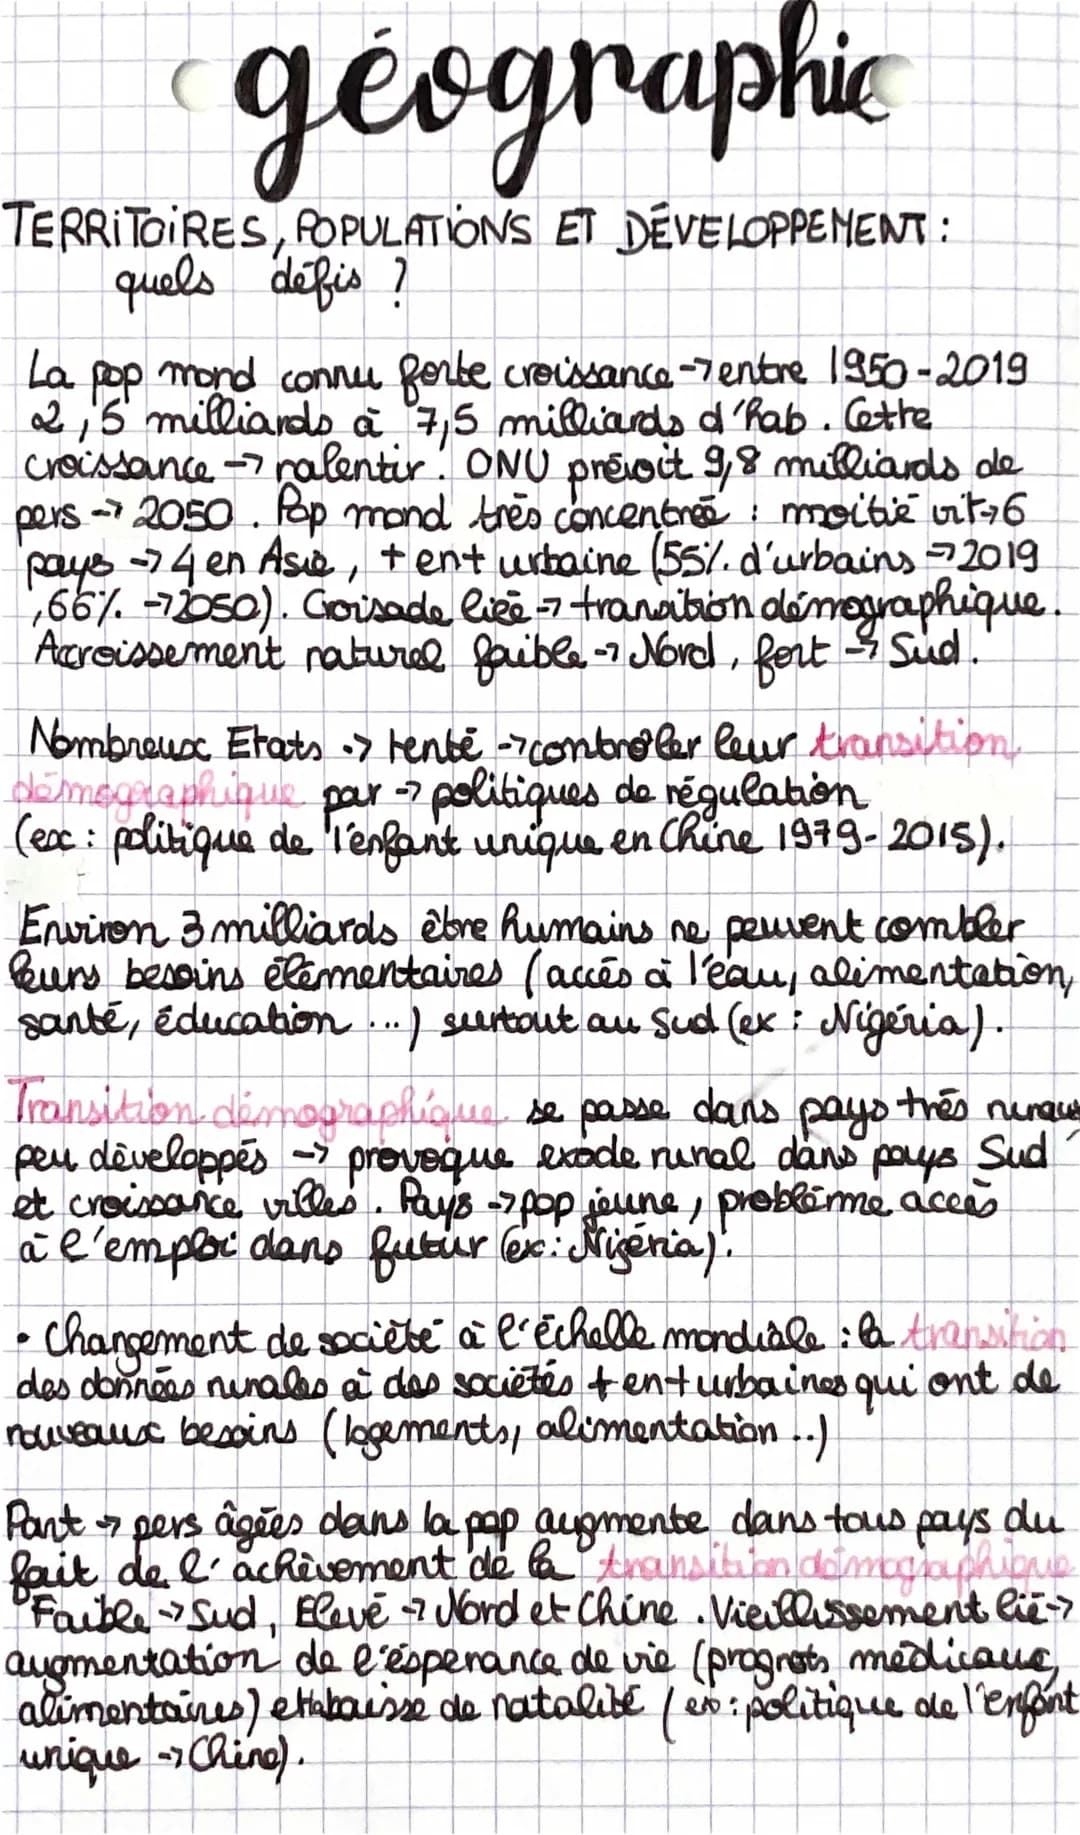 géographie
TERRITOIRES, POPULATIONS ET DÉVELOPPEMENT :
quels défis ?
La pop mond connu forte croissance → entre 1950-2019
2,5 milliards à 7,5 milliards d'hab. Cette
croissance → ralentir. ONU prévoit 9,8 milliards de
pers → 2050. Pop mond très concentrée : moitié vit → 6
pays → 4 en Asie, + ent urbaine (55% d'urbains → 2019
,66% → 2050). Croisade liée → transition démographique.
Accroissement naturel faible → Nord, fort → Sud.
Nombreux Etats → tenté → contrôler leur transition
démographique par → politiques de régulation
(ex : politique de l'enfant unique en Chine 1979-2015).
Environ 3 milliards être humains ne peuvent combler
leurs besoins élémentaires (accès à l'eau, alimentation,
santé, éducation ...) surtout au Sud (ex : Nigéria).
Transition démographique se passe dans pays très ruraux
peu développés → provoque exode rural dans pays Sud
et croissance villes. Pays → pop jeune, problème accès
à l'emploi dans futur (ex : Nigéria).
• Changement de société à l'échelle mondiale : la transition
des données rurales à des sociétés + ent urbaines qui ont de
nouveaux besoins (logements, alimentation ..)
Part → pers âgées dans la pop augmente dans tous pays du
fait de l'achèvement de la transition démographique
Faible → Sud, Elevé → Nord et Chine. Vieillissement lié →
augmentation de l'ésperance de vie (progrets médicaux,
alimentaires) et baisse de natalité (ex : politique de l'enfant
unique → Chine).